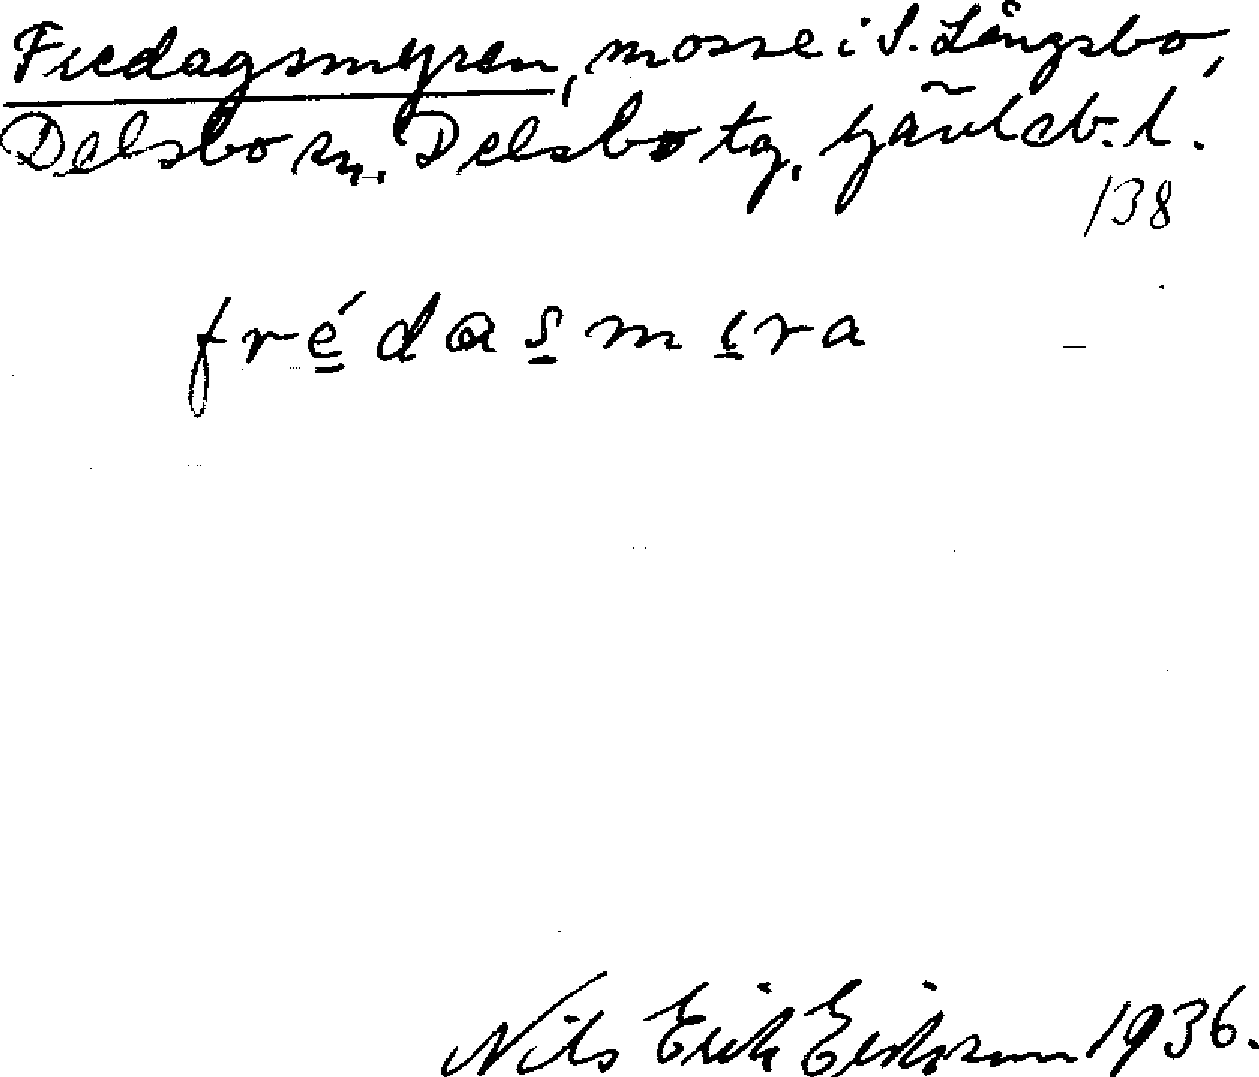 Fredagsmyren, mosse i S. Långsbo,
Delsbo sn. Delsbo tg, Gävleb. l.
138
frédasmyra
Nils Erik Eriksson 1936.